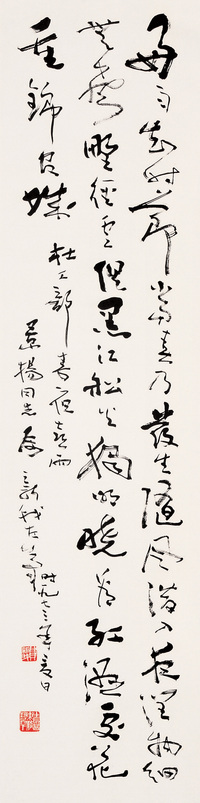 好雨知時節當春乃發生隨風潛入夜潤物細
無聲野徑云俱黑江船火獨明曉看紅濕處花
重錦官城 杜工部春夜喜雨
揚同志屬 新我左筆 時一九七三年